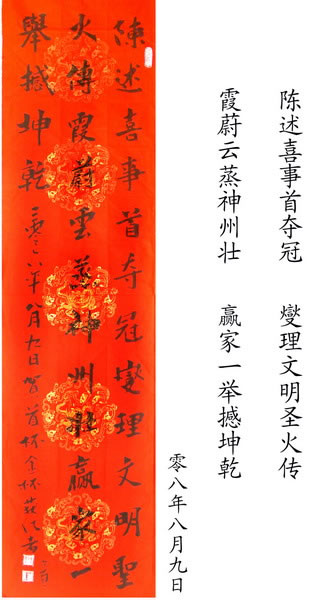 陈述喜事首夺冠 燮理文明圣火传
霞蔚云蒸神州壮 赢家一举撼坤乾
零八年八月九日
陳述喜事首夺冠燮理文明聖
火傳霞蔚雲蒸神州壯贏家一
舉撼坤乾 八年八月九日賀首杯金杯